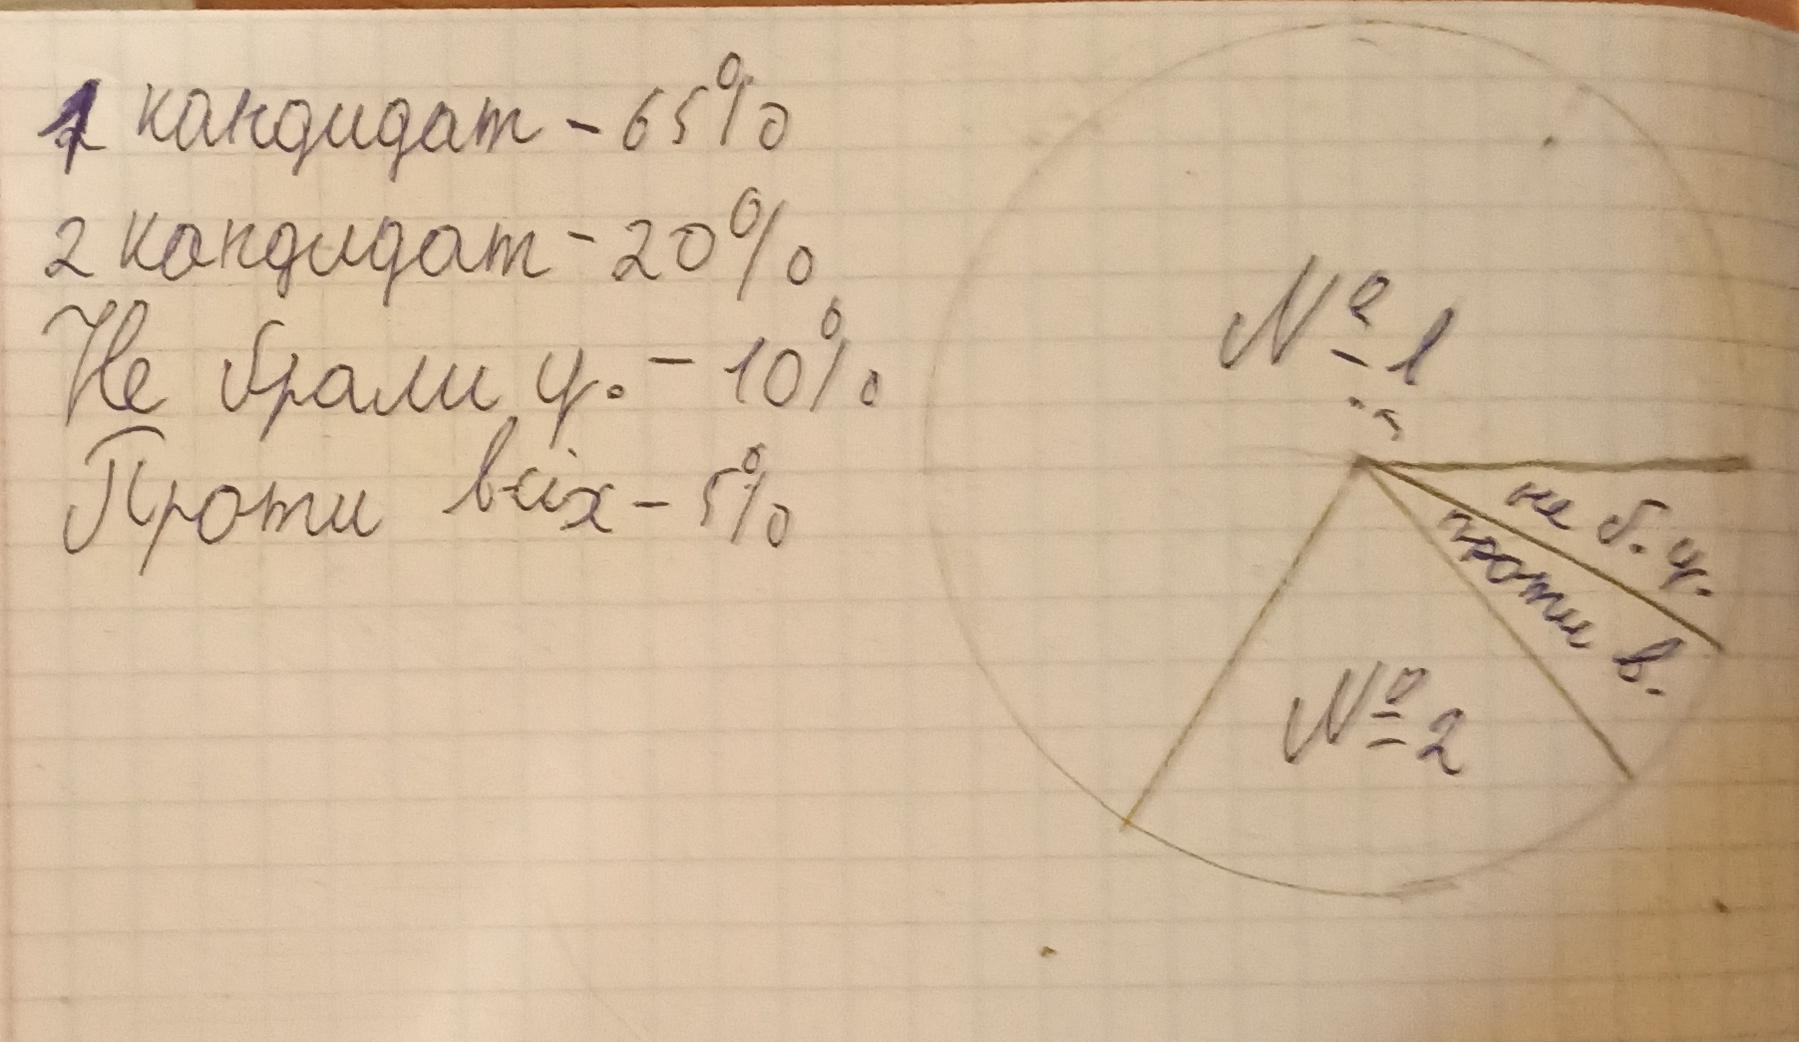 1 кандидат - 65%
2 кандидат - 20%
Не брали у. - 10%
Проти всіх - 5%
№ 1
не б. у.
проти в.
№ 2